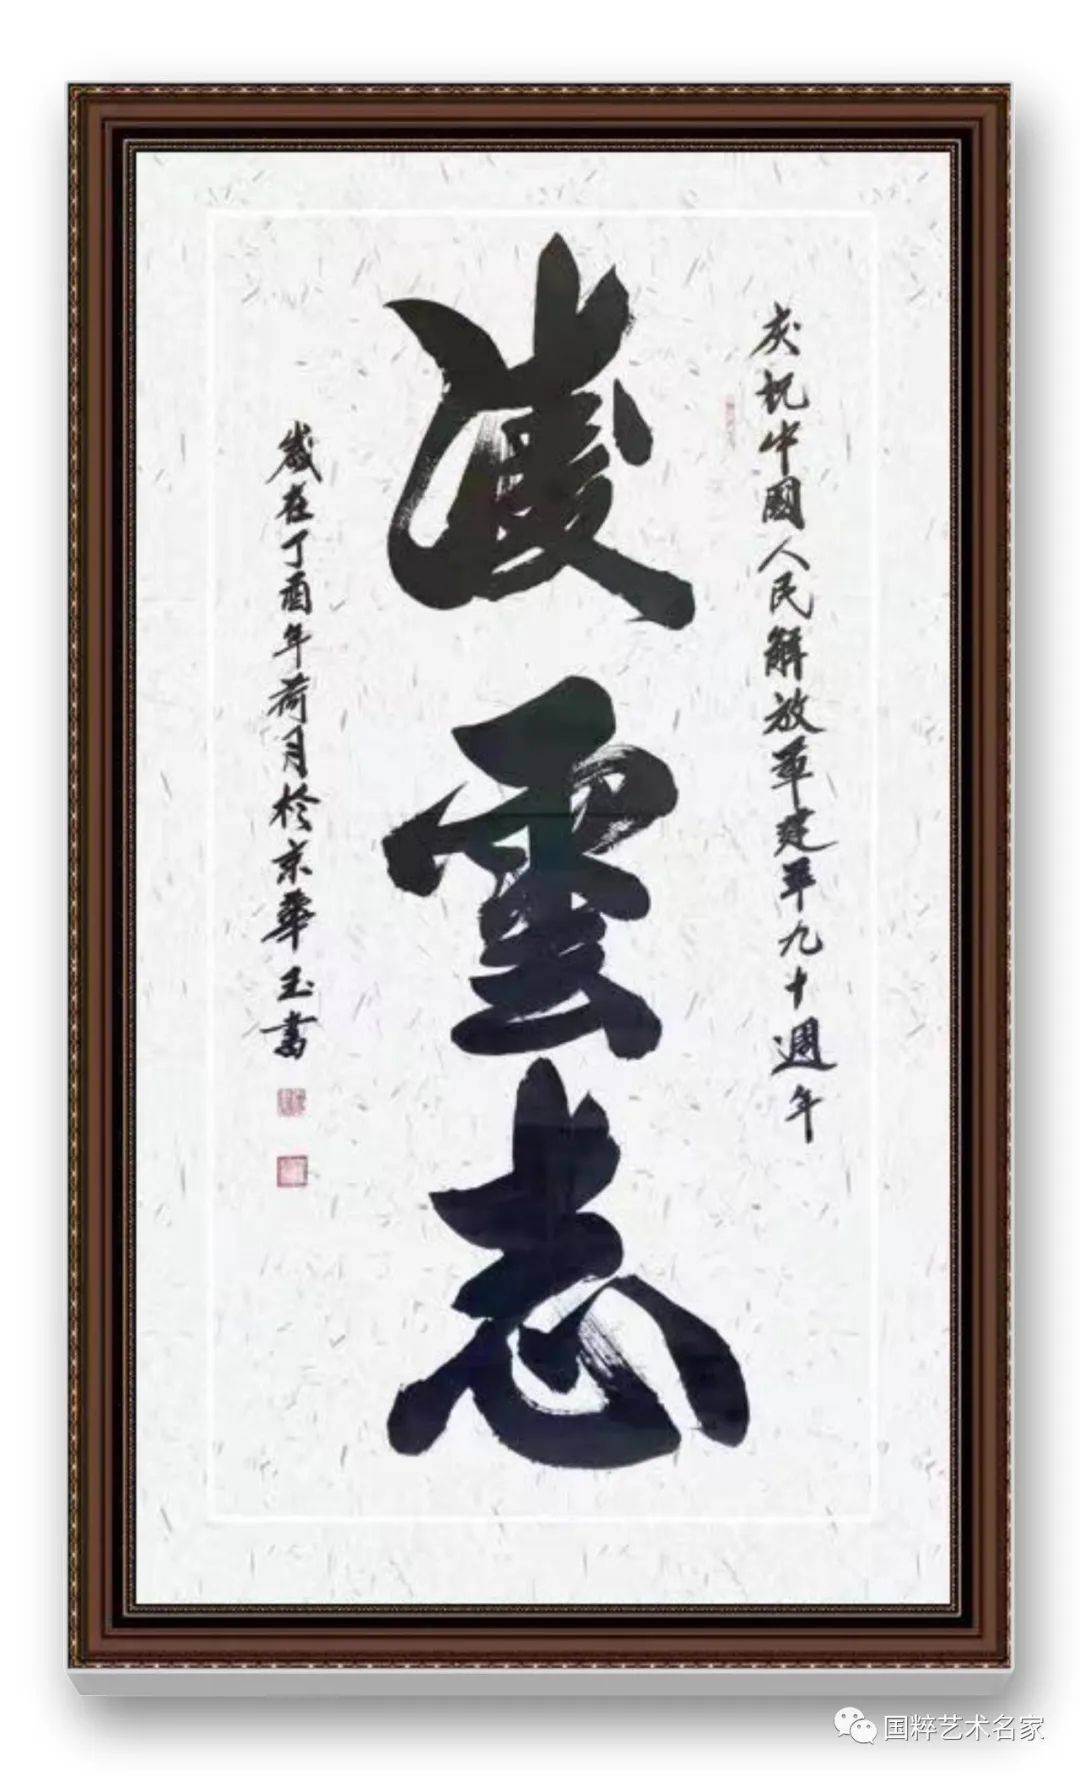 庆祝中國人民解放軍建軍九十週年
凌雲志
歲在丁酉年荷月於京華玉書
国粹艺术名家